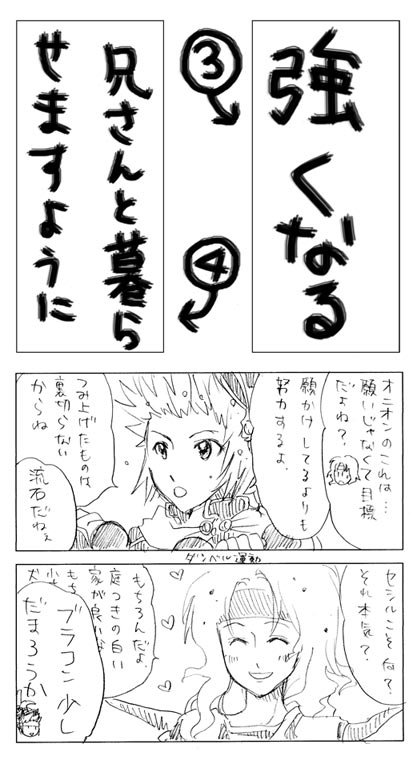 強くなる
③
④
兄さんと暮ら
せますように
オニオンのこれは…
願いじゃなくて目標
だよね?
願かけしてるよりも
努力するよ。
つみ上げたものは
裏切らない
からね
流石だねぇ
ダンベル運動
セシルこそ何?
それ本気?
もちろんだよ。
庭つきの白い
家が良いな
もち
少
犬
ブラコン少し
だまろうか